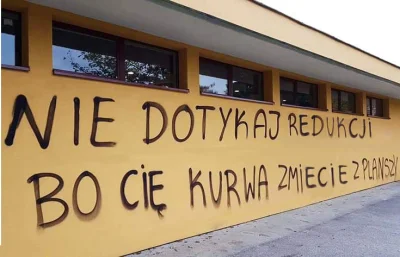 NIE DOTYKAJ REDUKCJI
BO CIĘ KURWA ZMIECIE Z PLANSZY